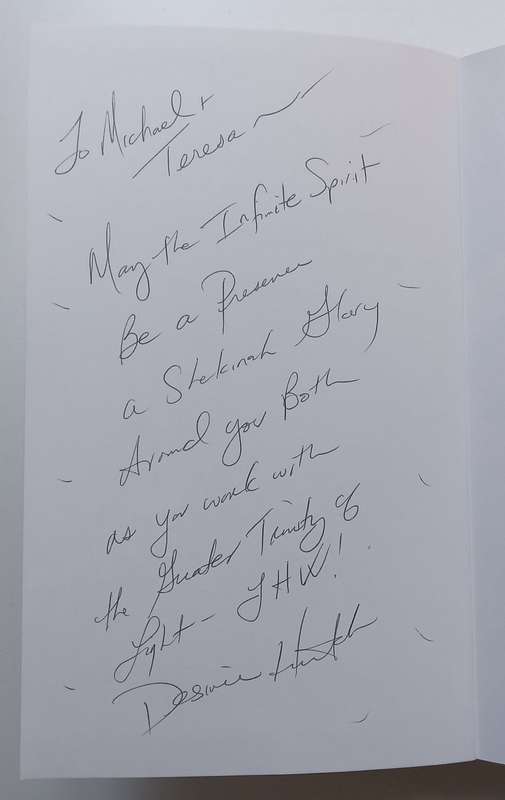 To Michael +
Teresa
May the Infinite Spirit
Be a Presence
a Shekinah Glory
Around you Both
as you work with
the Greater Trinity of
Light - JHW!
Desiree Hurtak